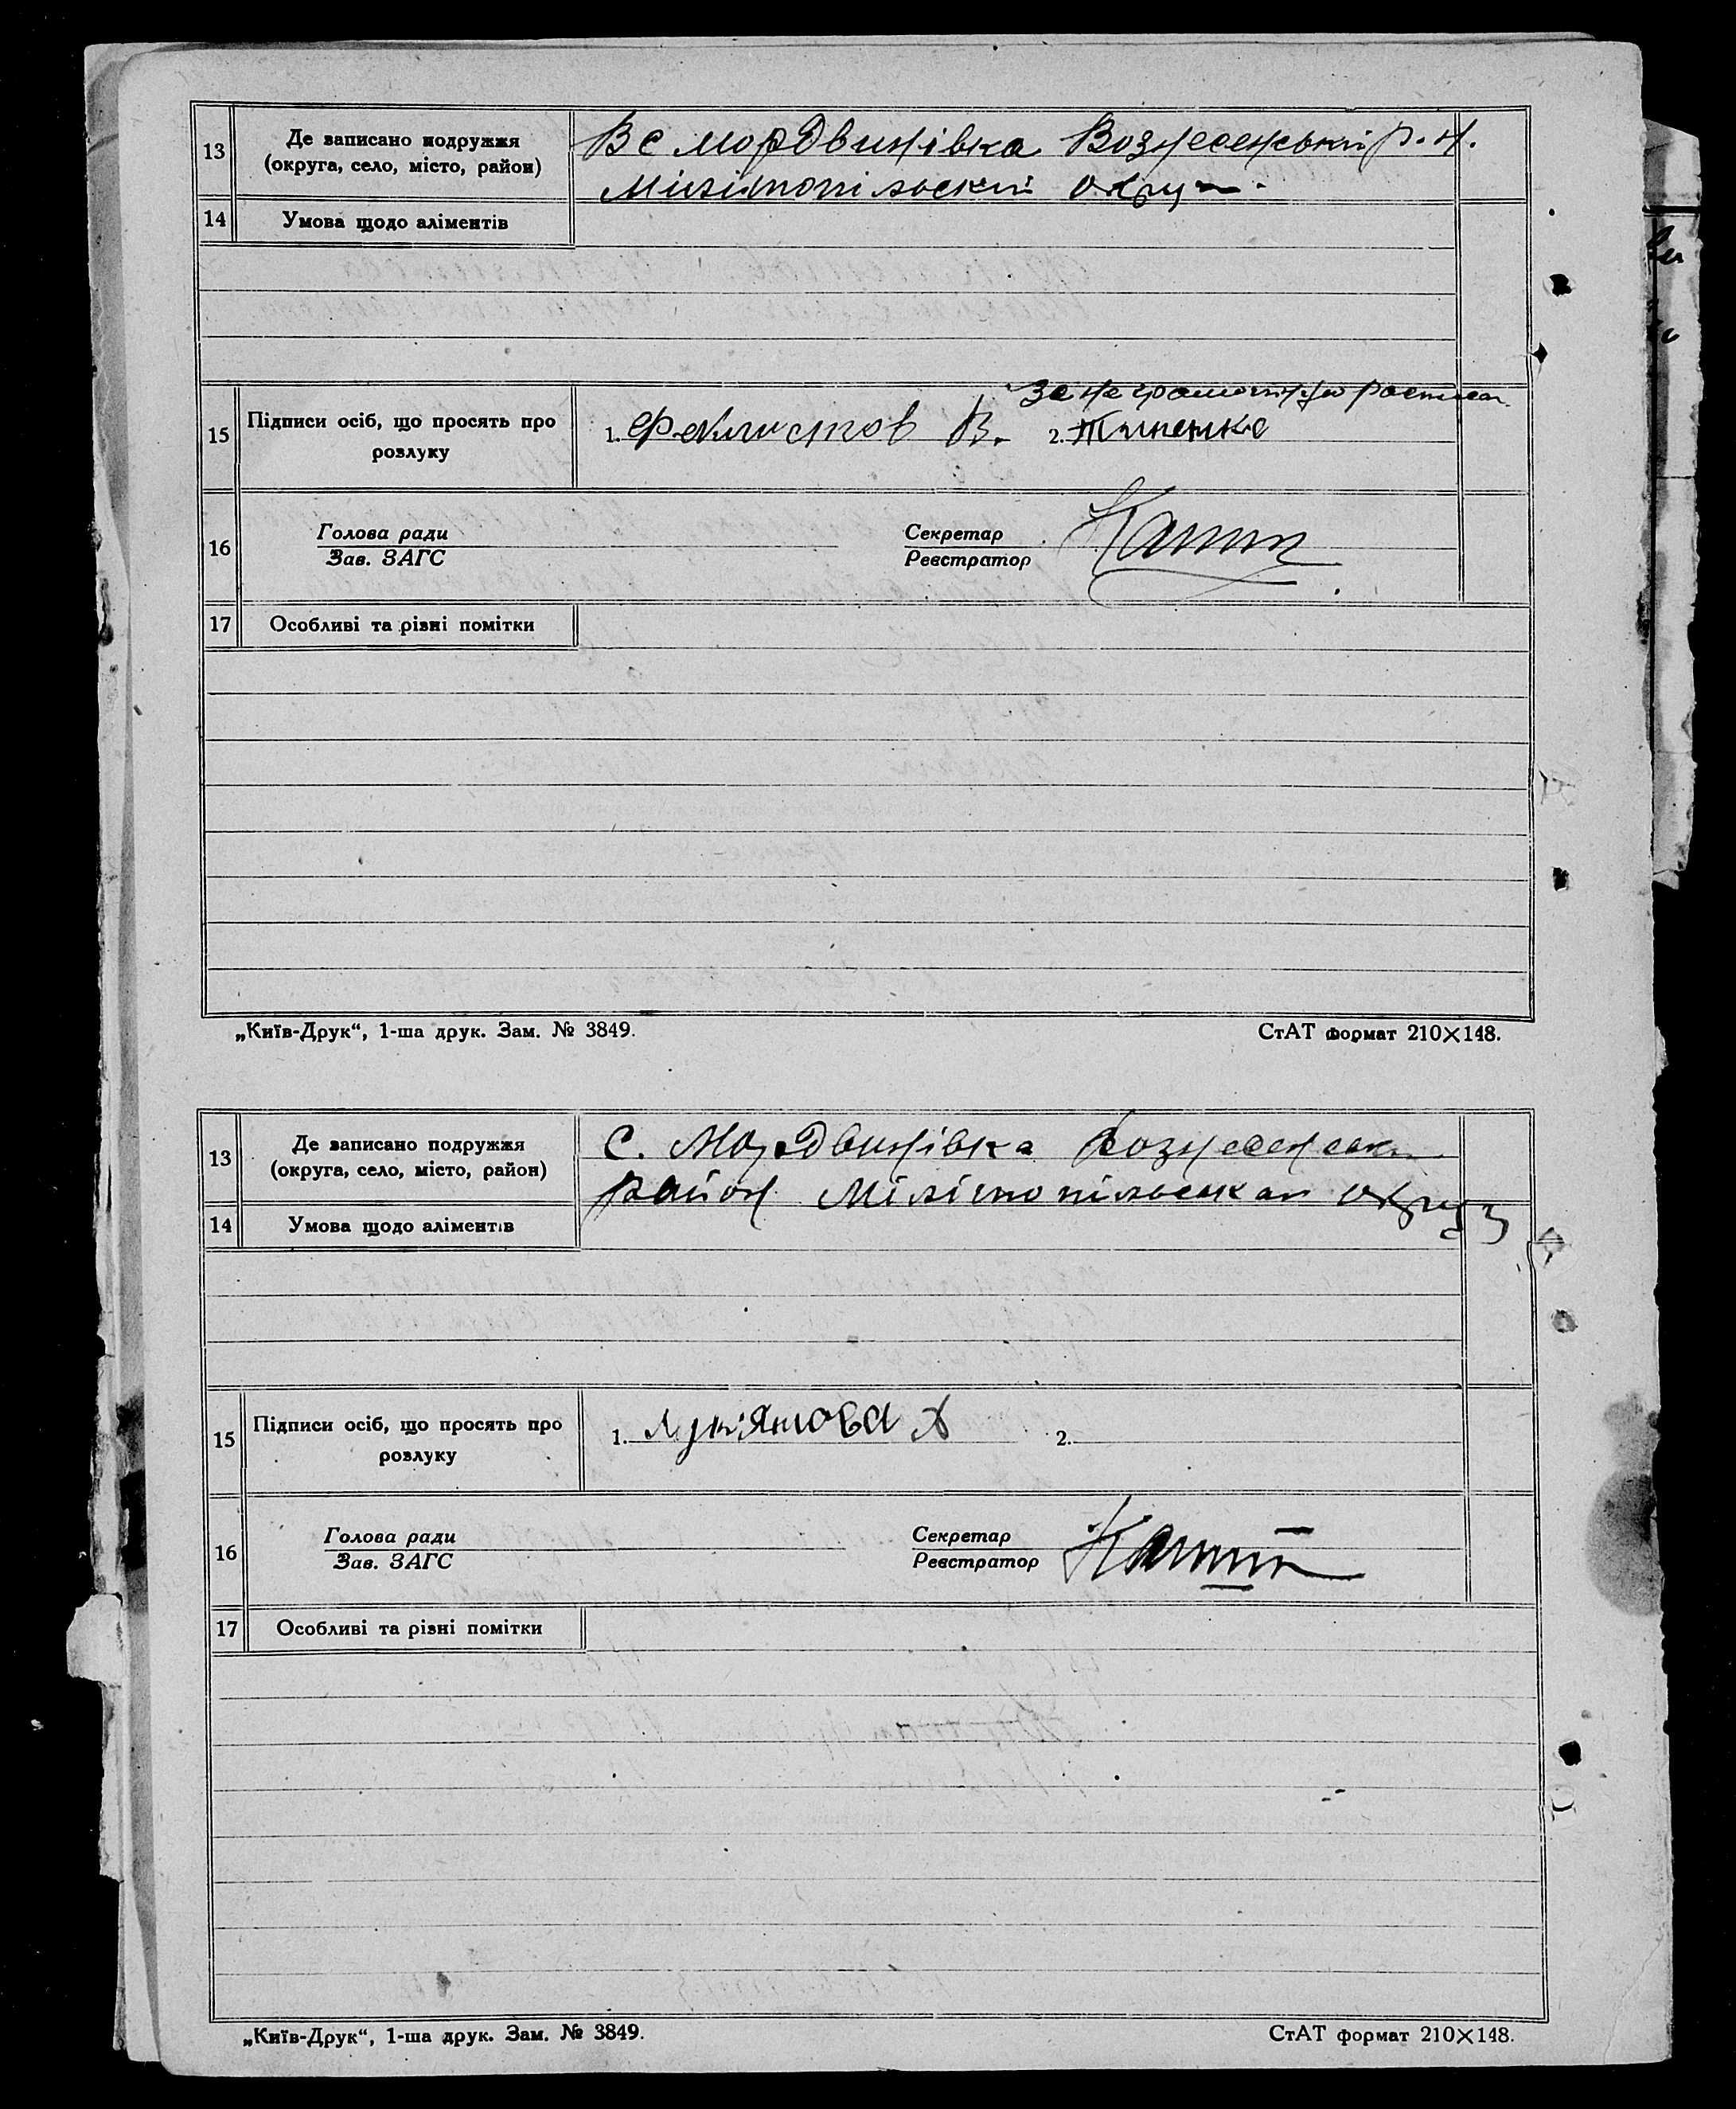 13 Де записано подружжя
(округа, село, місто, район)
В с мордвинівка Вознесенський р.н.
Мілітопільский округ.
14 Умова щодо аліментів
15 Підписи осіб, що просять про
розлуку
1. Феклистов В. 2.
за неграмотную
16 Голова ради
Зав. ЗАГС
Секретар
Реєстратор
17 Особливі та різні помітки
„Київ-Друк“, 1-ша друк. Зам. № 3849. СтАТ формат 210×148.
13 Де записано подружжя
(округа, село, місто, район)
С. Мордвинівка
район Мілітопільськая округ
14 Умова щодо аліментів
15 Підписи осіб, що просять про
розлуку
1. Лукіянова А 2.
16 Голова ради
Зав. ЗАГС
Секретар
Реєстратор
17 Особливі та різні помітки
„Київ-Друк“, 1-ша друк. Зам. № 3849. СтАТ формат 210×148.